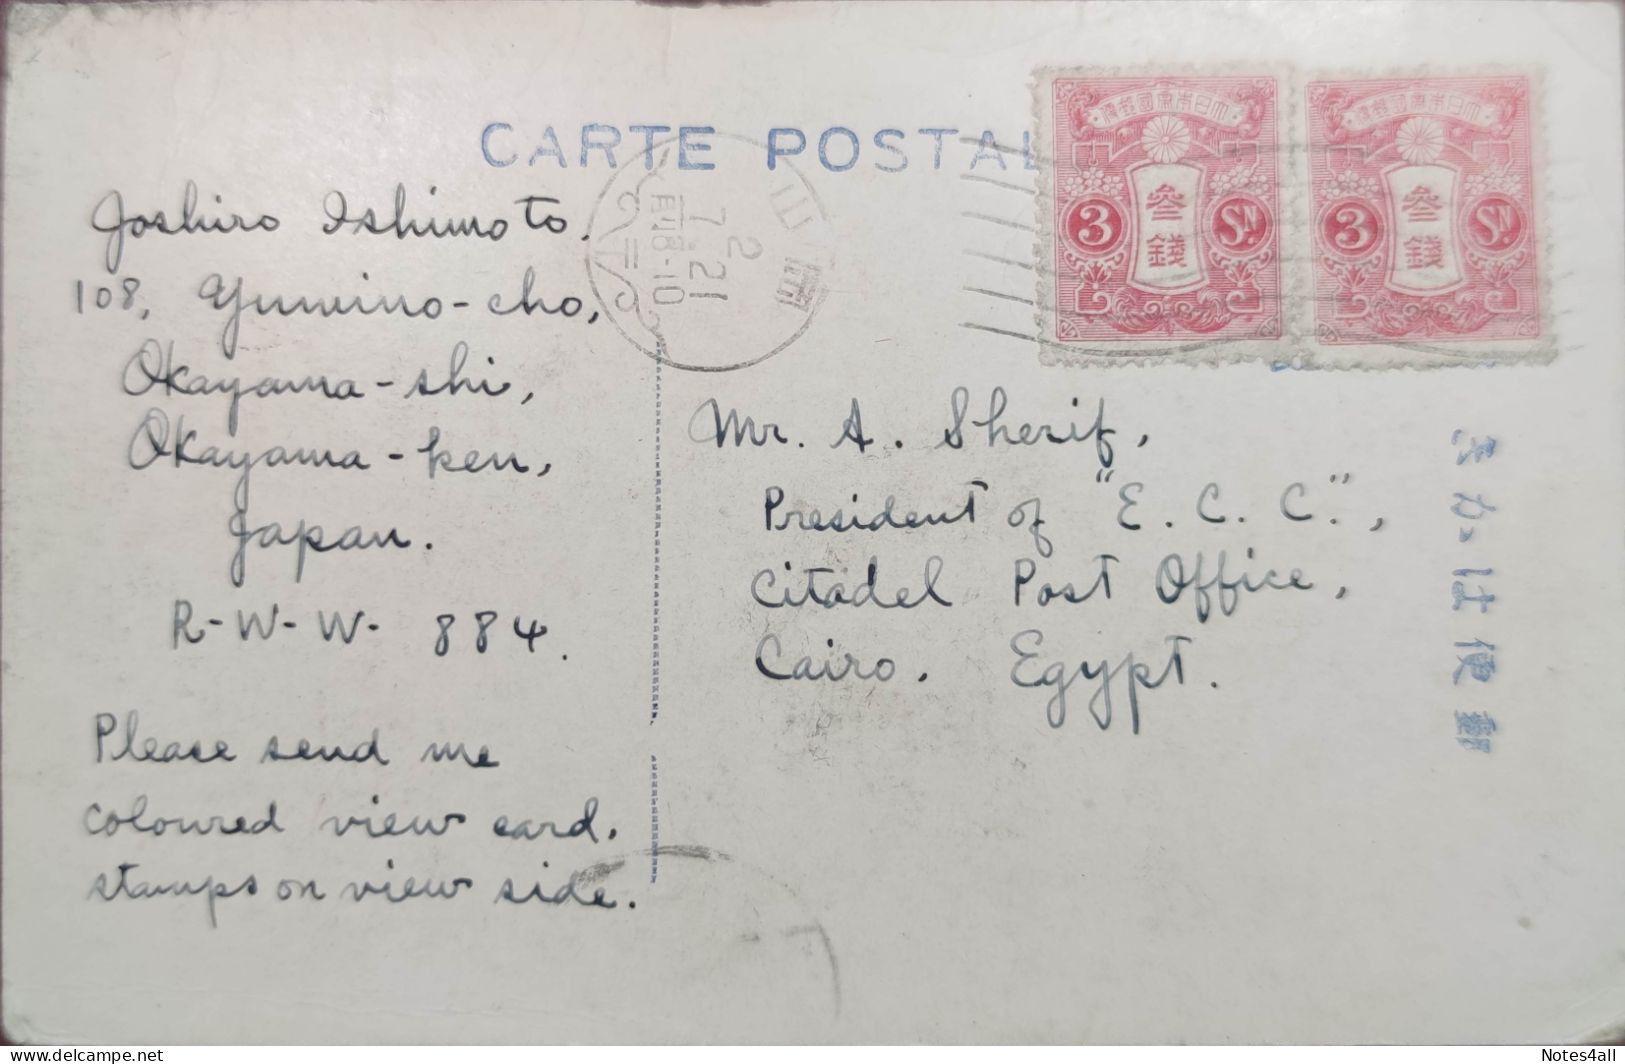 CARTE POSTAL
大日本帝國郵便
3
SN.
参
錢
大日本帝國郵便
3
SN.
参
錢
岡
山
2
7.21
8-10
Joshiro Ishimoto.
108, Yumino-cho,
Okayama-shi,
Okayama-ken,
Japan.
R-W-W- 884.
Please send me
coloured view card.
stamps on view side.
Mr. A. Sherif,
President of "E. C. C.",
Citadel Post Office,
Cairo. Egypt.
郵便はかき
Notes4all
delcampe.net